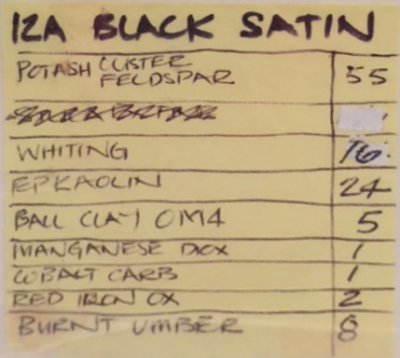 12A BLACK SATIN
POTASH CUSTER
FELDSPAR 55
WHITING 16
EPKAOLIN 24
BALL CLAY OM4 5
MANGANESE DIOX 1
COBALT CARB 1
RED IRON OX 2
BURNT UMBER 8